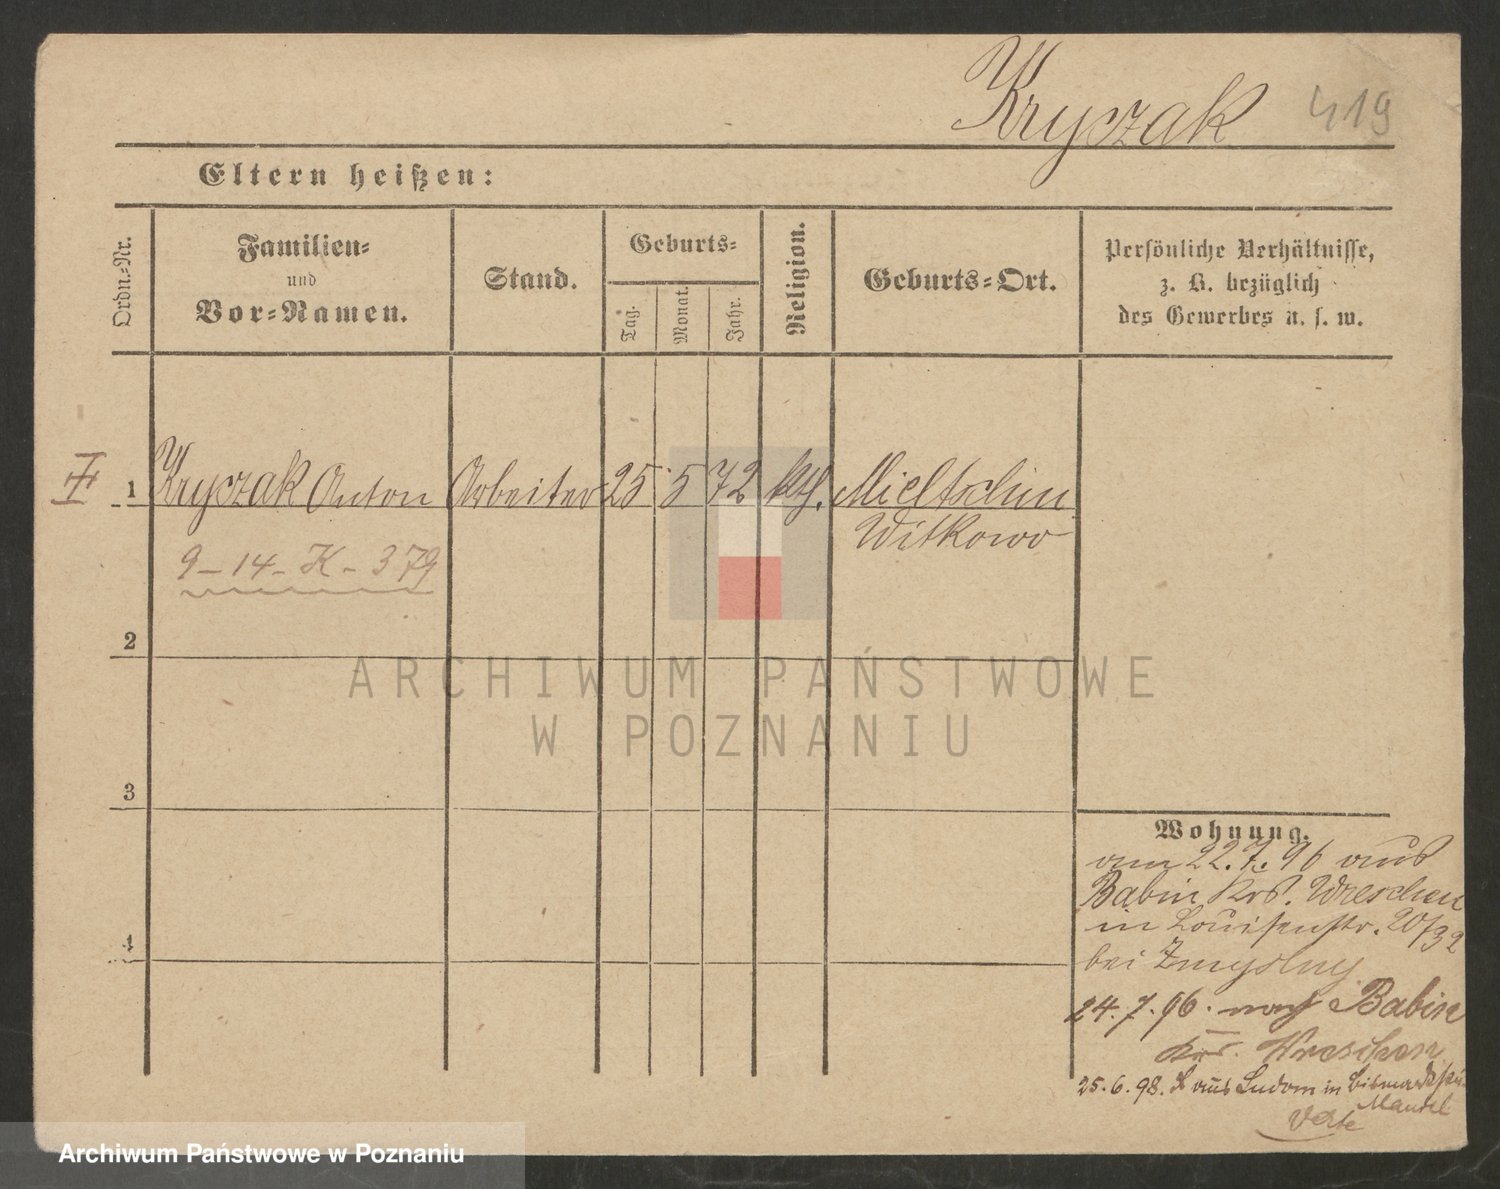 Kryczak 419
Eltern heißen:
Ordn.-Nr.
Familien-
und
Vor-Namen.
Stand.
Geburts-
Tag.
Monat.
Jahr.
Religion.
Geburts-Ort.
Persönliche Verhältnisse,
z. B. bezüglich
des Gewerbes u. s. w.
1 Kryczak Anton Arbeiter 25 5 72 kth. Mieltschin
Witkowo
9-14-K-379
2
3
4
ARCHIWUM PAŃSTWOWE
W POZNANIU
Wohnung.
am 22.7.96 aus
Babin Krs. Wreschen
in Louisenstr. 20/32
bei Zmyslny
24.7.96. nach Babin
Krs. Wreschen
25.6.98. aus Ludom in
Mandel
Verte
Archiwum Państwowe w Poznaniu